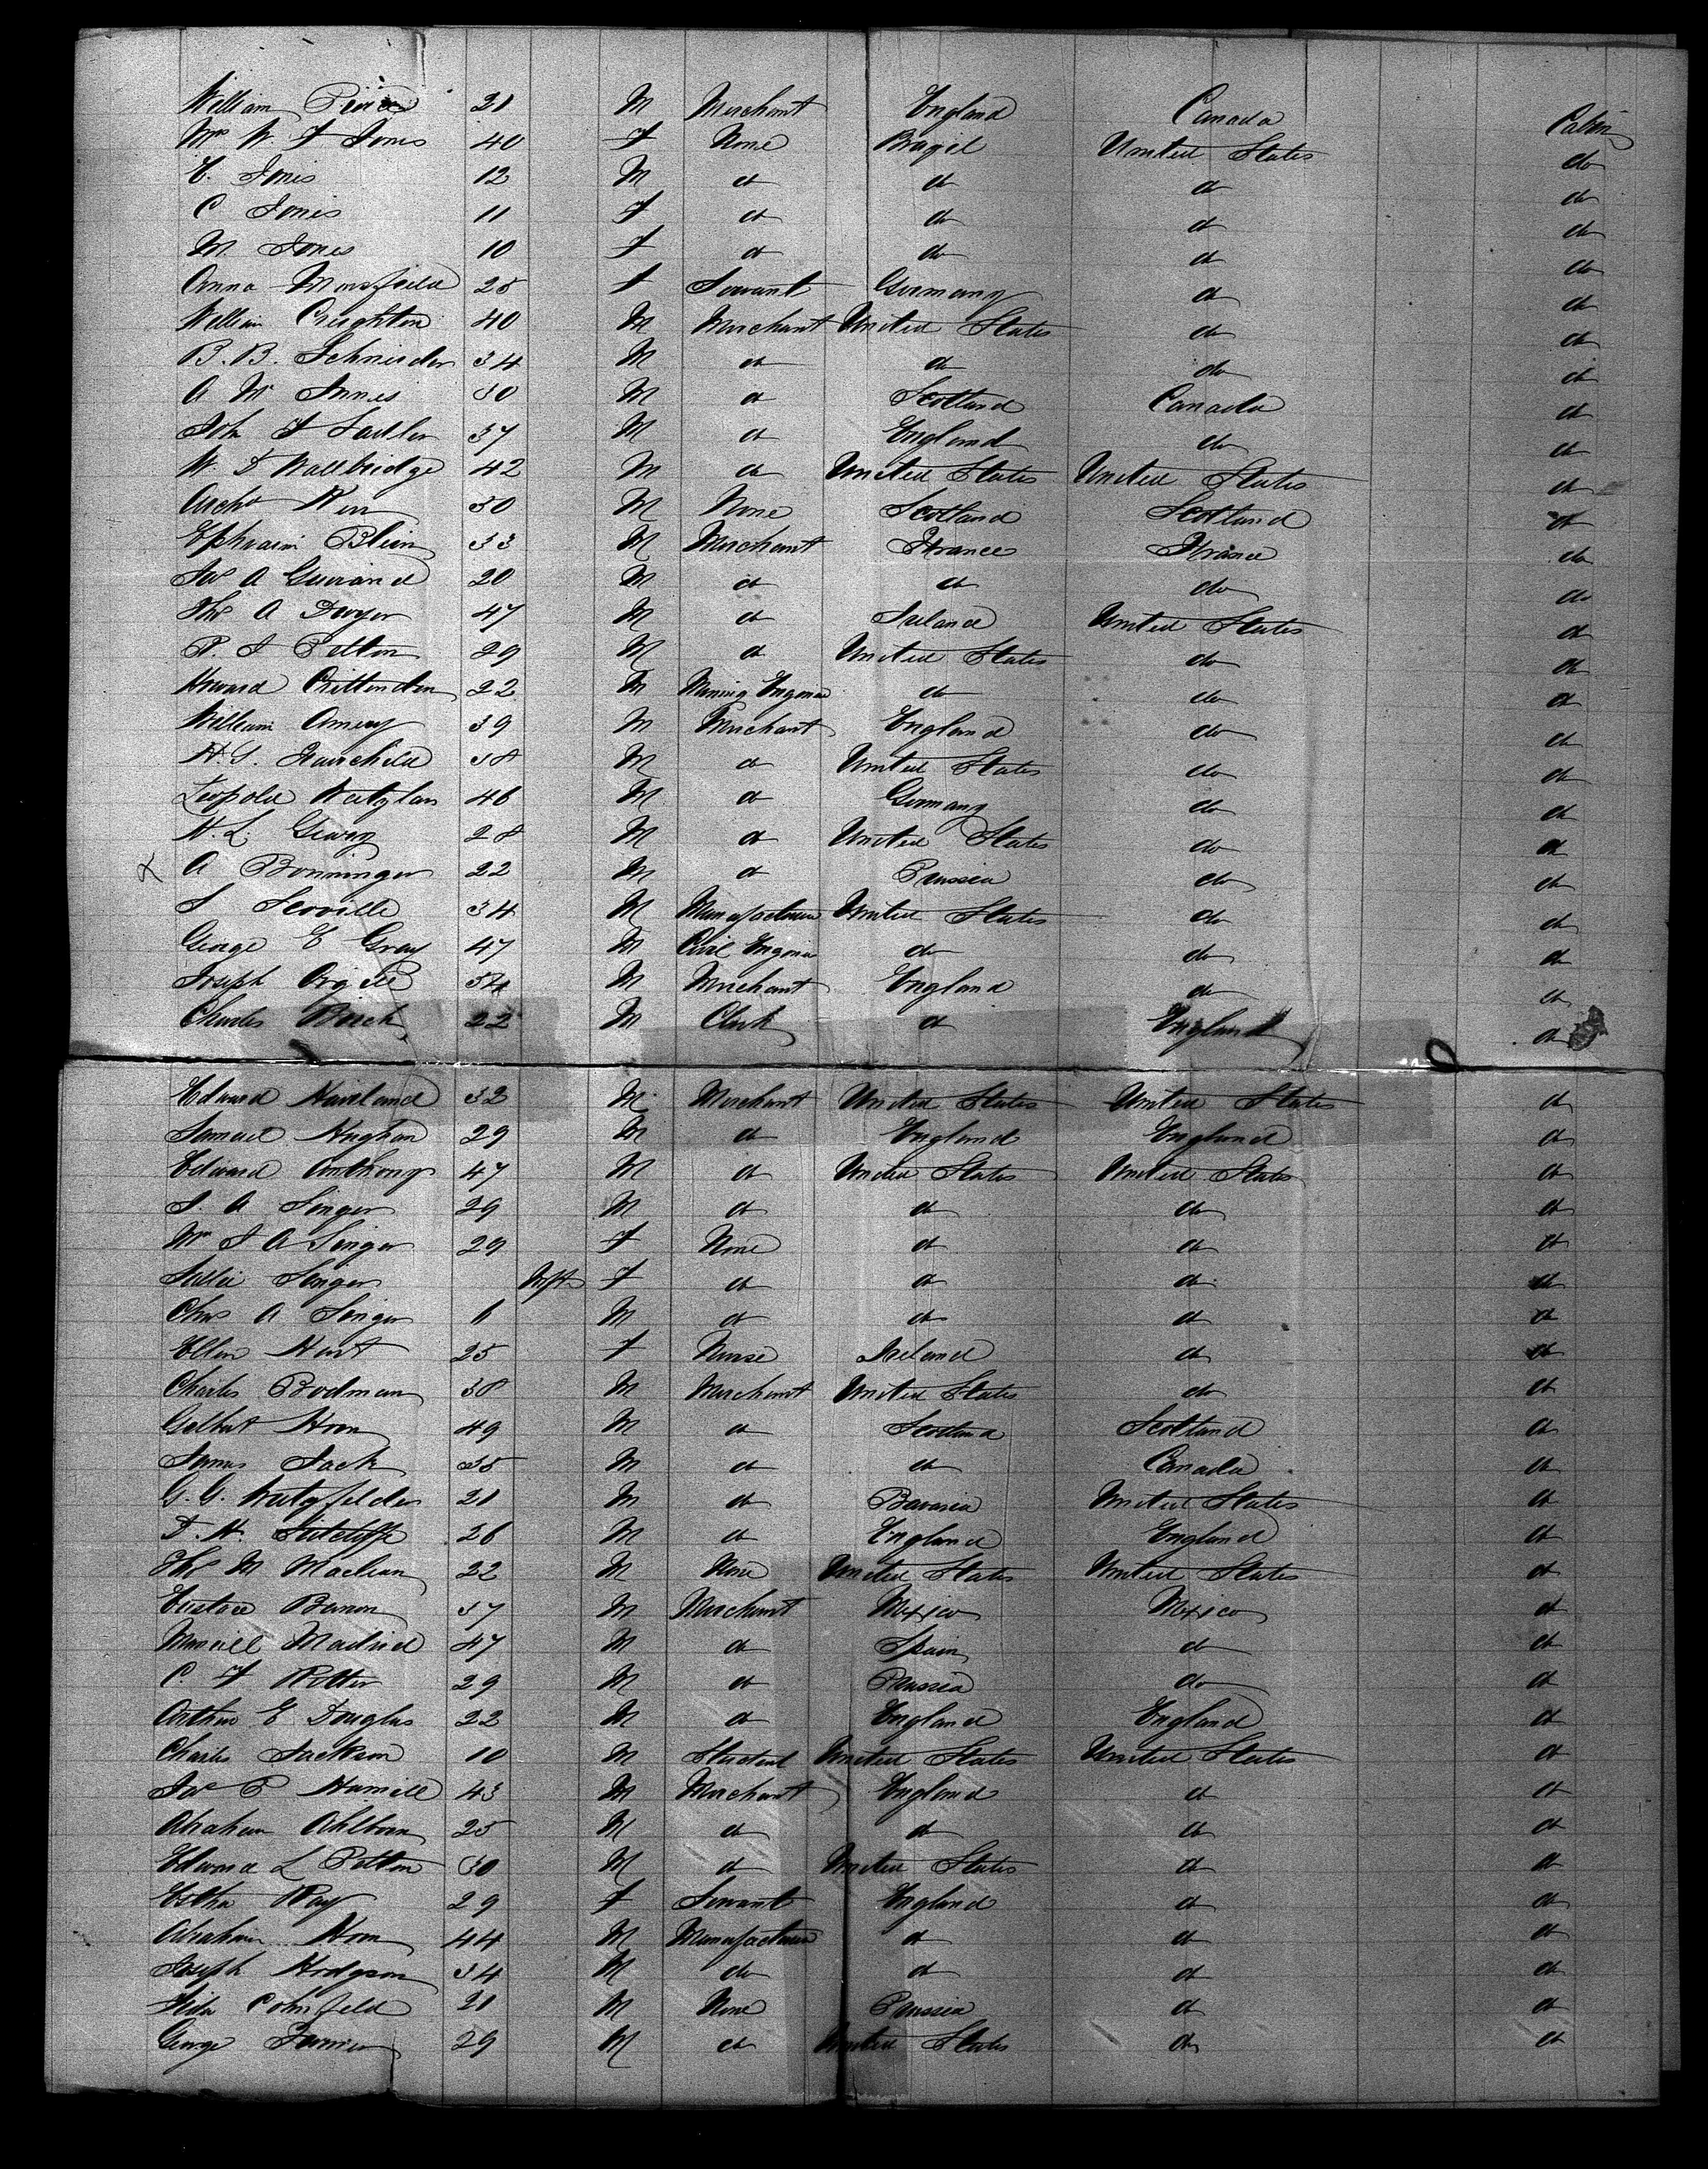 William 21 M Merchant England Canada Cabin
Mrs W. F Jones 40 F None Brazil United States do
E. Jones 12 M do do do do
C Jones 11 F do do do do
M. Jones 10 F do do do do
Anna Mansfield 25 F Servant Germany do do
William Creighton 40 M Merchant United States do do
B. B. Schneider 34 M do do do do
A Mc Innes 30 M do Scotland Canada do
Jno F Sadler 37 M do England do do
W. D Wallbridge 42 M do United States United States do
Archd Kerr 50 M None Scotland Scotland do
Ephraim Blein 33 M Merchant France France do
Jos A Guirand 20 M do do do do
Thos A Dwyer 47 M do Ireland United States do
P. S Pelton 29 M do United States do do
Howard Crittenden 22 M Mining Engineer do do do
William Amery 39 M Merchant England do do
H. G. Fairchild 38 M do United States do do
Leopold 46 M do Germany do do
H. L. 28 M do United States do do
A Bonninger 22 M do Prussia do do
S Scoville 34 M Manufacturer United States do do
George E Gray 47 M Civil Engineer do do do
Joseph 54 M Merchant England do do
Charles Birch 22 M Clerk do England do
Edward Haviland 32 M Merchant United States United States do
Samuel Highan 29 M do England England do
Edward Anthony 47 M do United States United States do
J. A Singer 29 M do do do do
Mrs J A Singer 29 F None do do do
Sallie Singer Mths F do do do do
Chas A Singer 6 M do do do do
Ellen Hart 25 F Nurse Ireland do do
Charles Bodman 38 M Merchant United States do do
Gilbert Horn 49 M do Scotland Scotland do
James Jack 35 M do do Canada do
G. G. Wetzfelder 21 M do Bavaria United States do
D. H. Sutcliffe 26 M do England England do
Thos M Maclean 22 M None United States United States do
Eustace Barron 37 M Merchant Mexico Mexico do
Manuel Madrid 47 M do Spain do do
C. F Ritter 29 M do Prussia do do
Arthur E Douglas 22 M do England England do
Charles Jackson 10 M Student United States United States do
Jos P Hamill 43 M Merchant England do do
Abraham Ahlborn 25 M do do do do
Edward L Pelton 30 M do United States do do
Esther Ray 29 F Servant England do do
Abraham Horn 44 M Manufacturer do do do
Joseph Hodgson 34 M do do do do
Cohnfeld 21 M None Prussia do do
George 29 M do United States do do